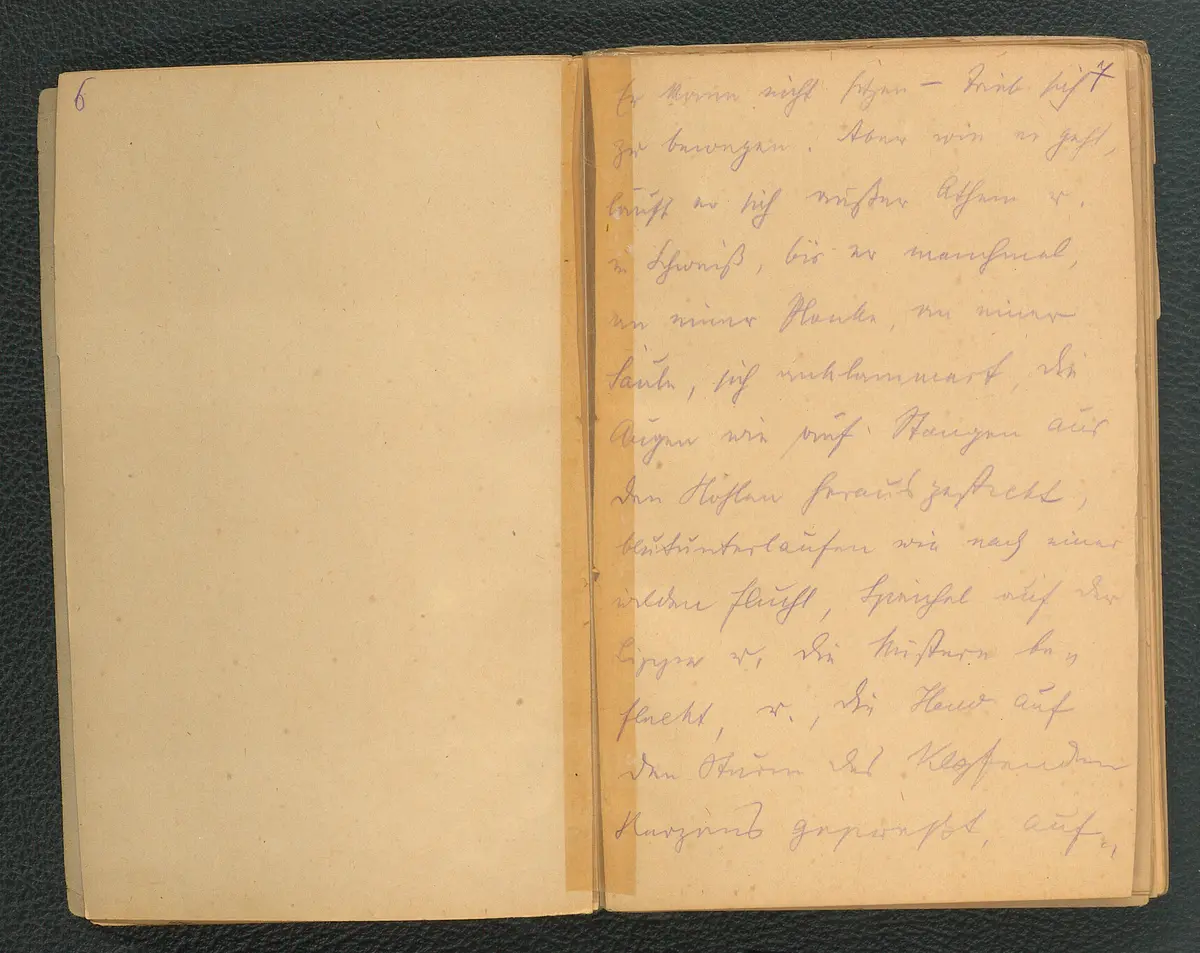 6
7
Er kann nicht sitzen – Trieb sich
zu bewegen. Aber wie er geht,
läuft er sich außer Athem u.
in Schweiß, bis er manchmal,
an einer Planke, an einer
Säule, sich anklammert, die
Augen wie auf Stangen aus
den Höhlen herausgesteckt,
blutunterlaufen wie nach einer
wilden Flucht, Speichel auf der
Lippe u. die Nüstern be-
fleckt, u., die Hand auf
den Sturm des klopfenden
Herzens gepreßt, auf-